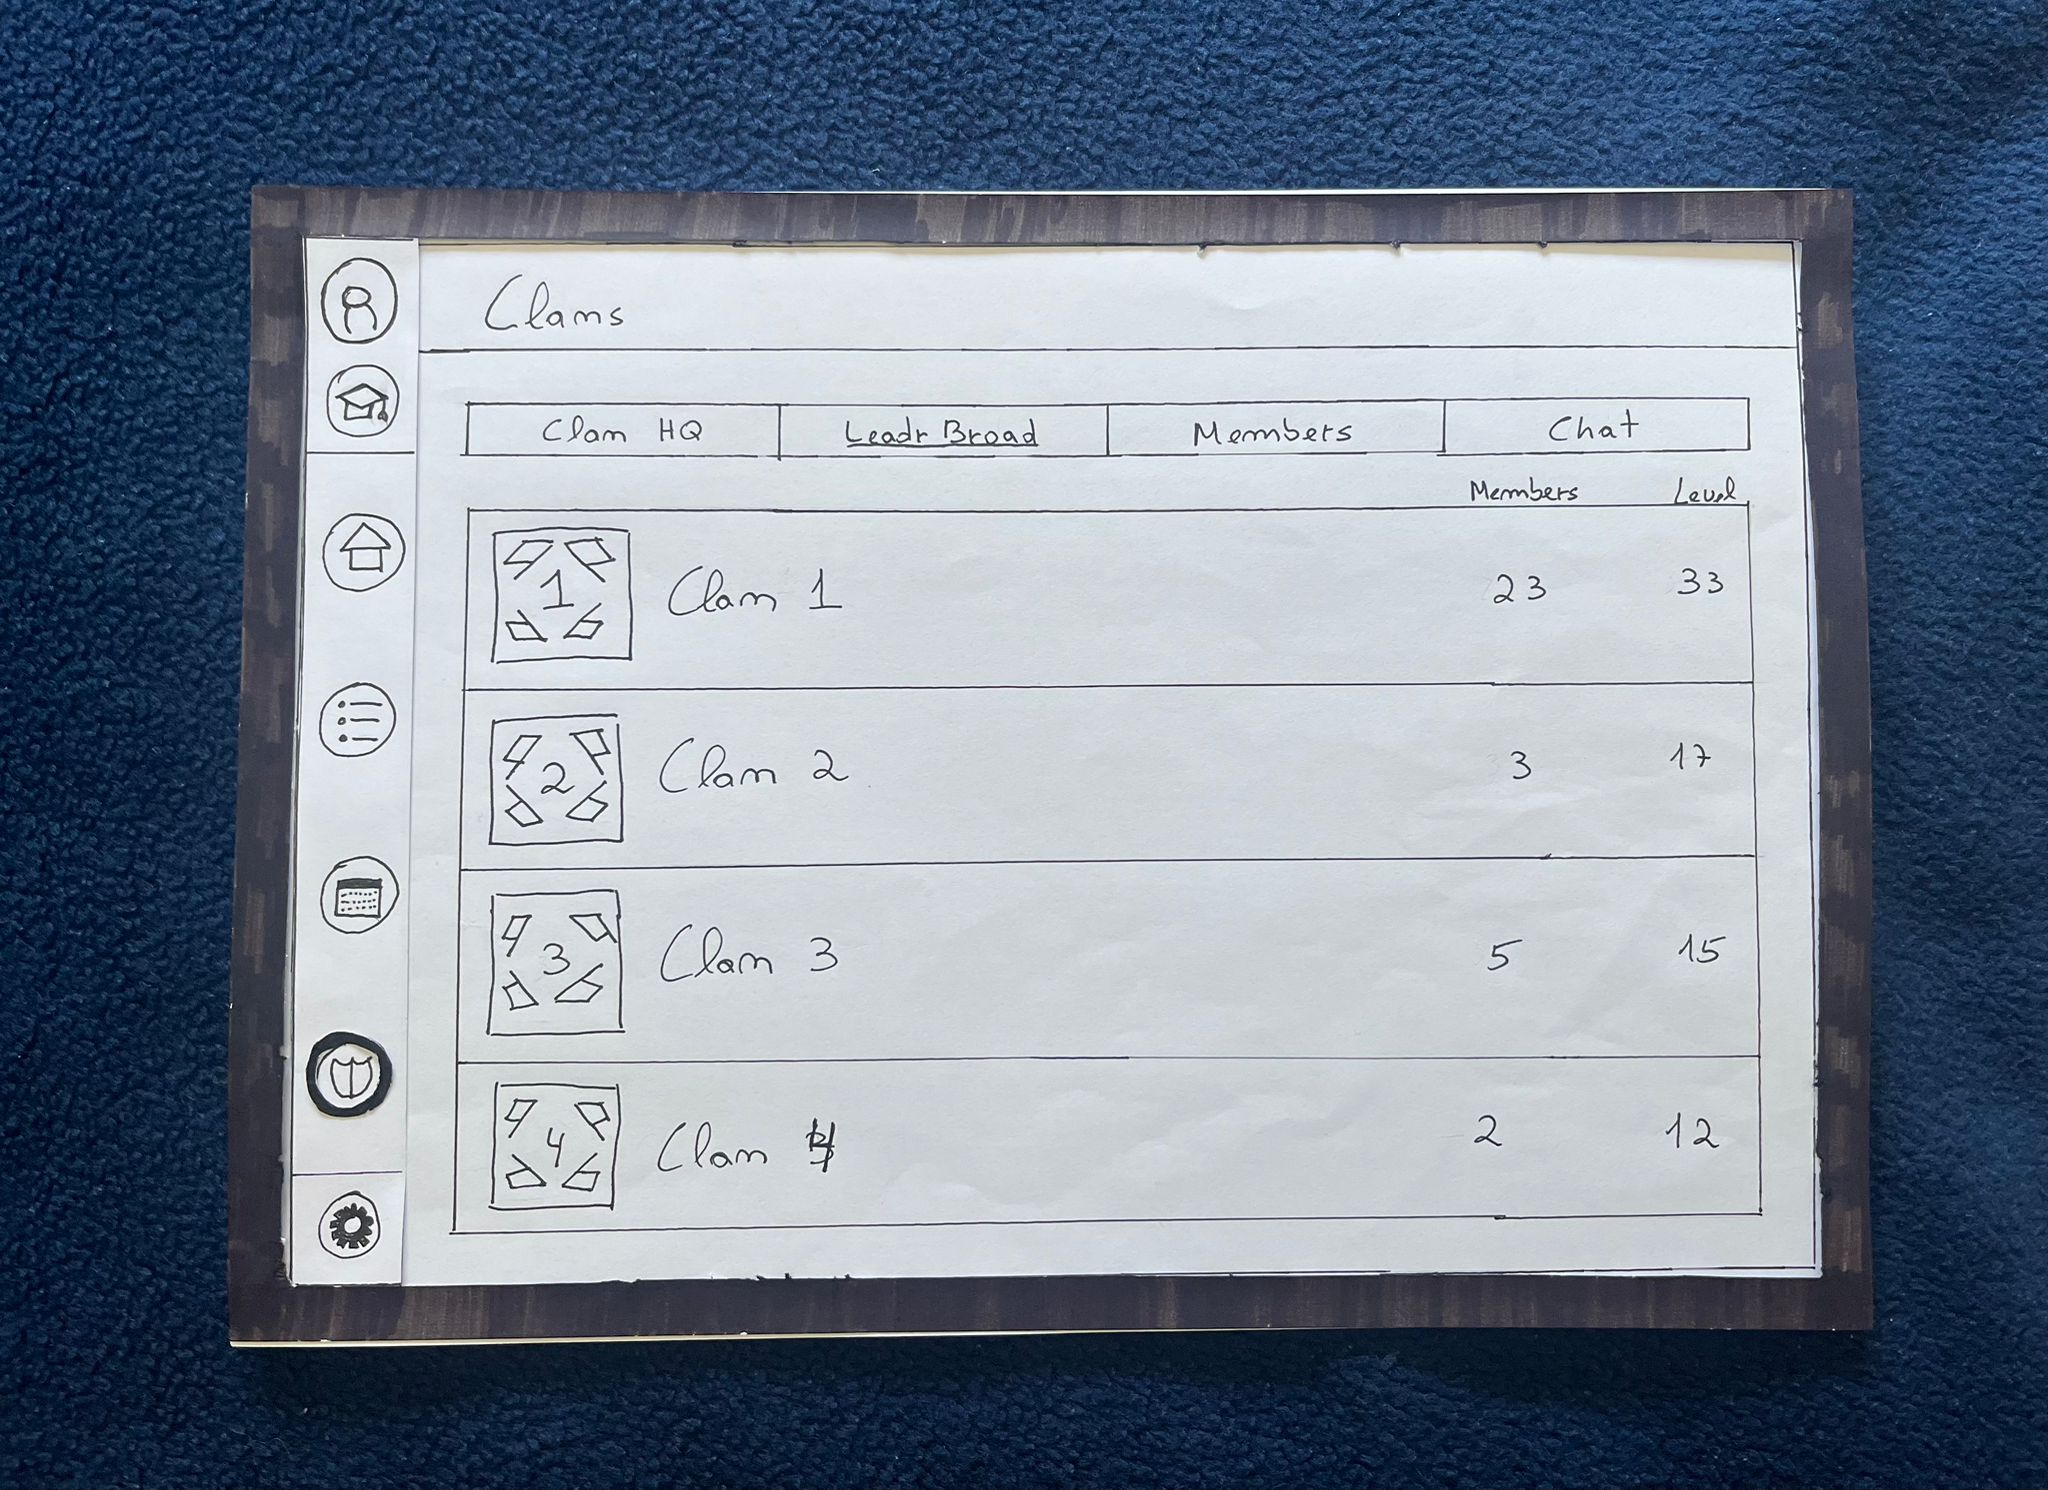 Clams
Clam HQ Leadr Broad Members Chat
Members Level
1 Clam 1 23 33
2 Clam 2 3 17
3 Clam 3 5 15
4 Clam 4 2 12